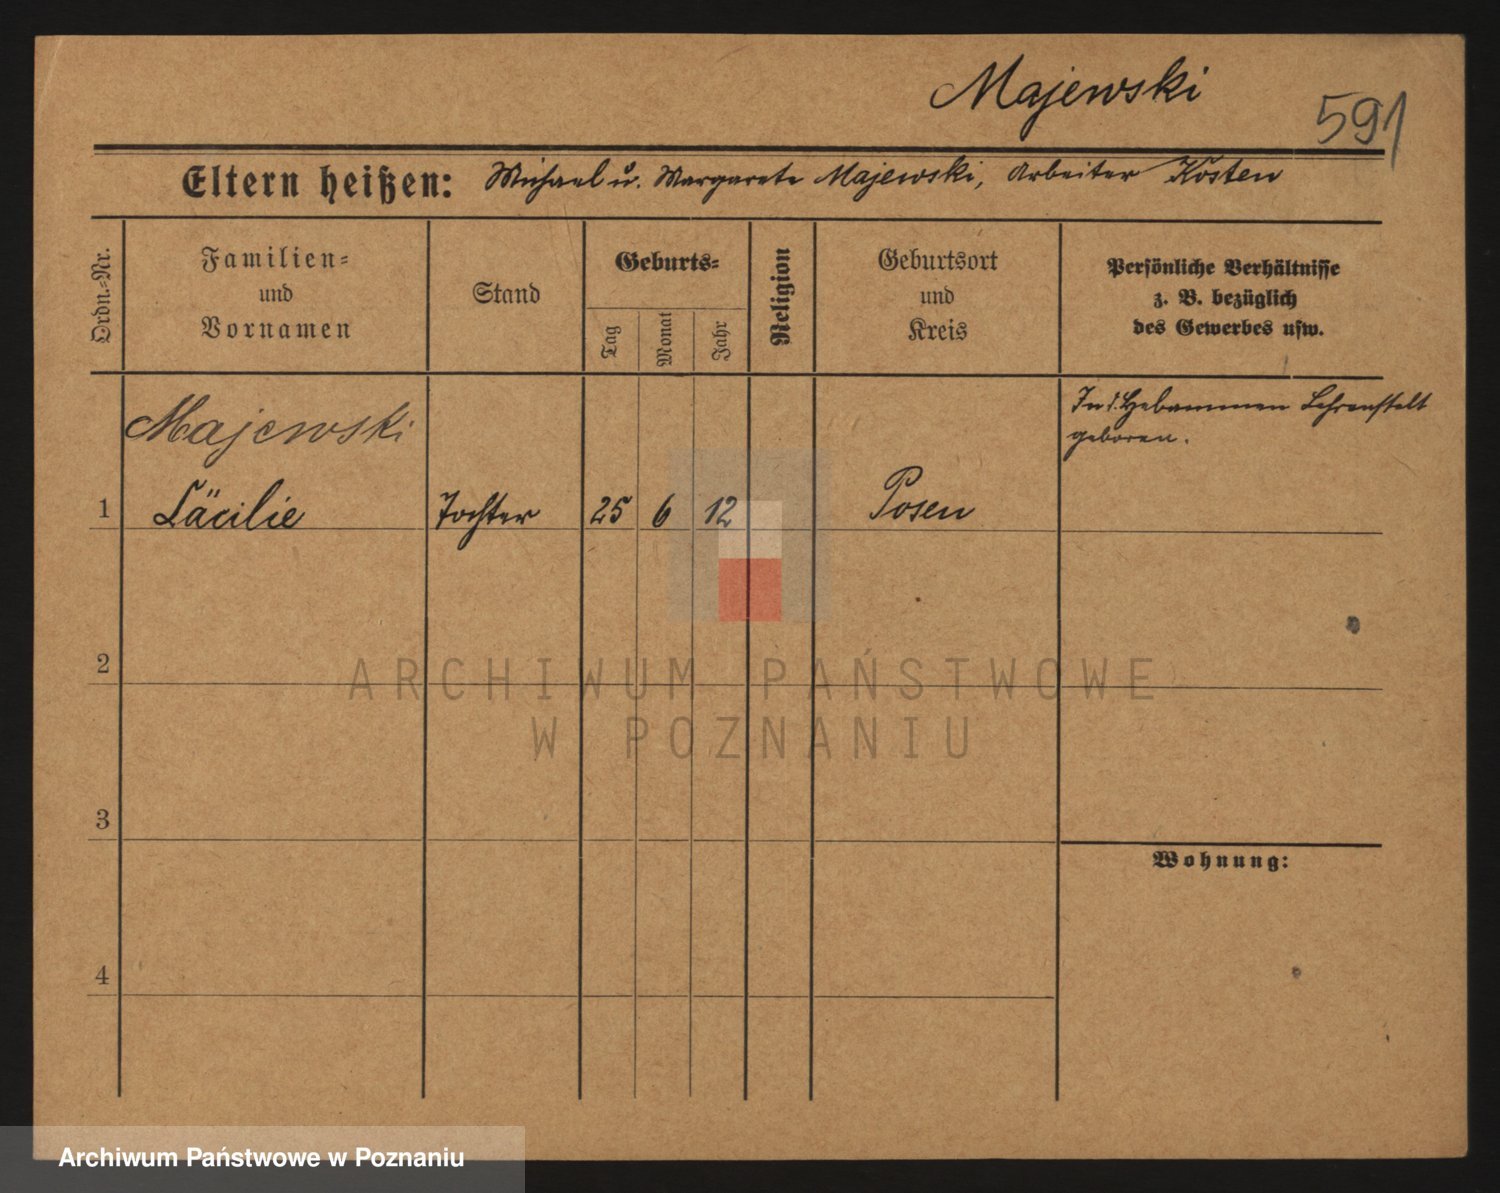 Majewski
591
Eltern heißen: Michael u. Margarete Majewski, Arbeiter Kosten
Ordn.-Nr.
Familien-
und
Vornamen
Stand
Geburts-
Tag
Monat
Jahr
Religion
Geburtsort
und
Kreis
Persönliche Verhältnisse
z. B. bezüglich
des Gewerbes usw.
Majewski
In d. Hebammen Lehranstalt
geboren.
1 Cäcilie Tochter 25 6 12 Posen
2
ARCHIWUM PAŃSTWOWE
W POZNANIU
3
Wohnung:
4
Archiwum Państwowe w Poznaniu